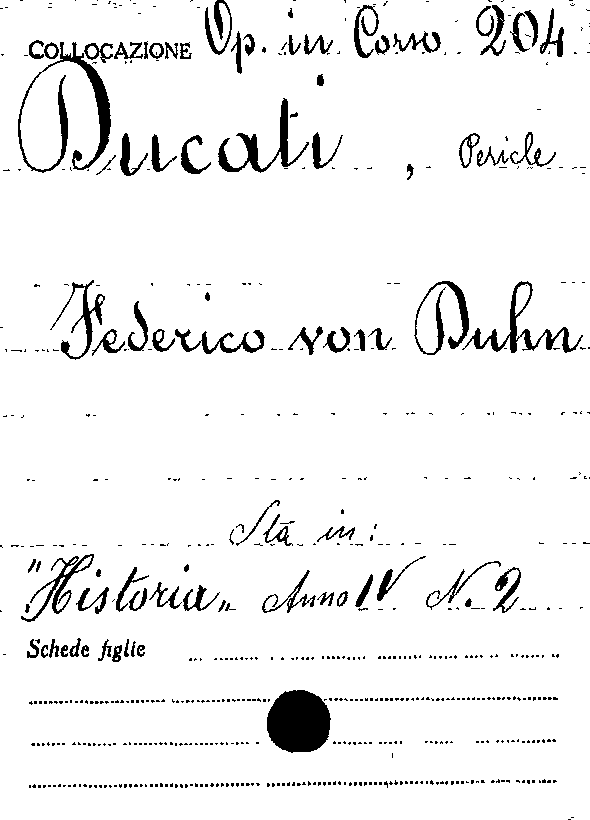 COLLOCAZIONE Op. in Corso 204
Ducati, Pericle
Federico von Duhn
Sta in:
"Historia„ Anno IV N. 2
Schede figlie